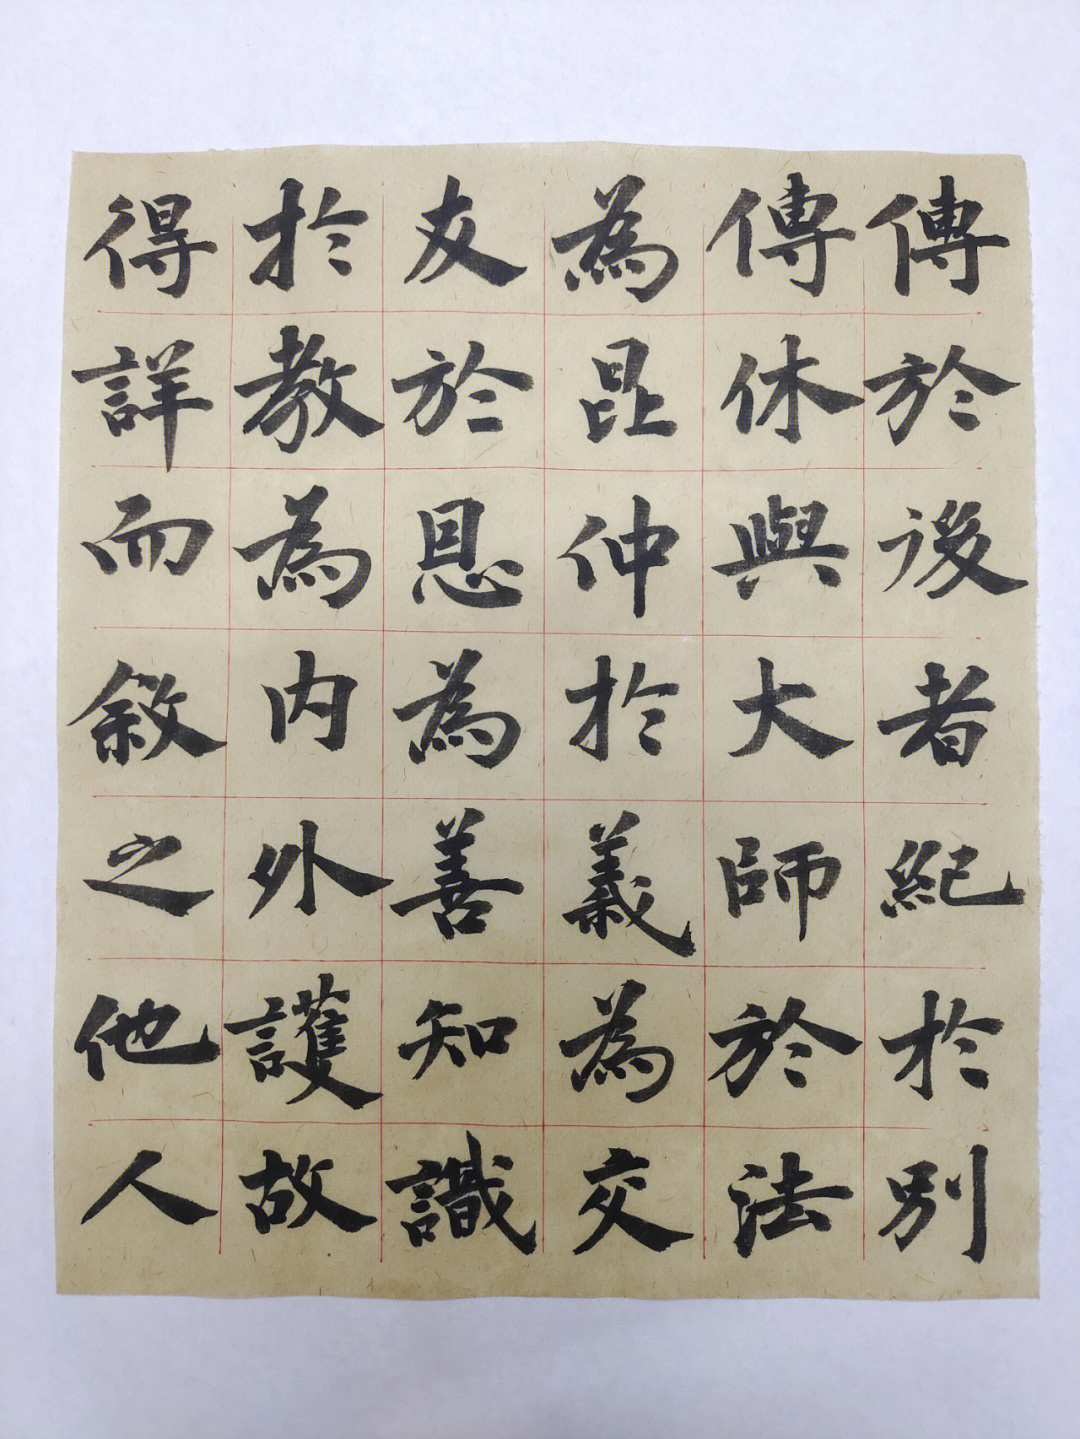 傳於後者紀於別
傳休與大師於法
為昆仲於義為交
友於恩為善知識
於教為內外護故
得詳而敘之他人